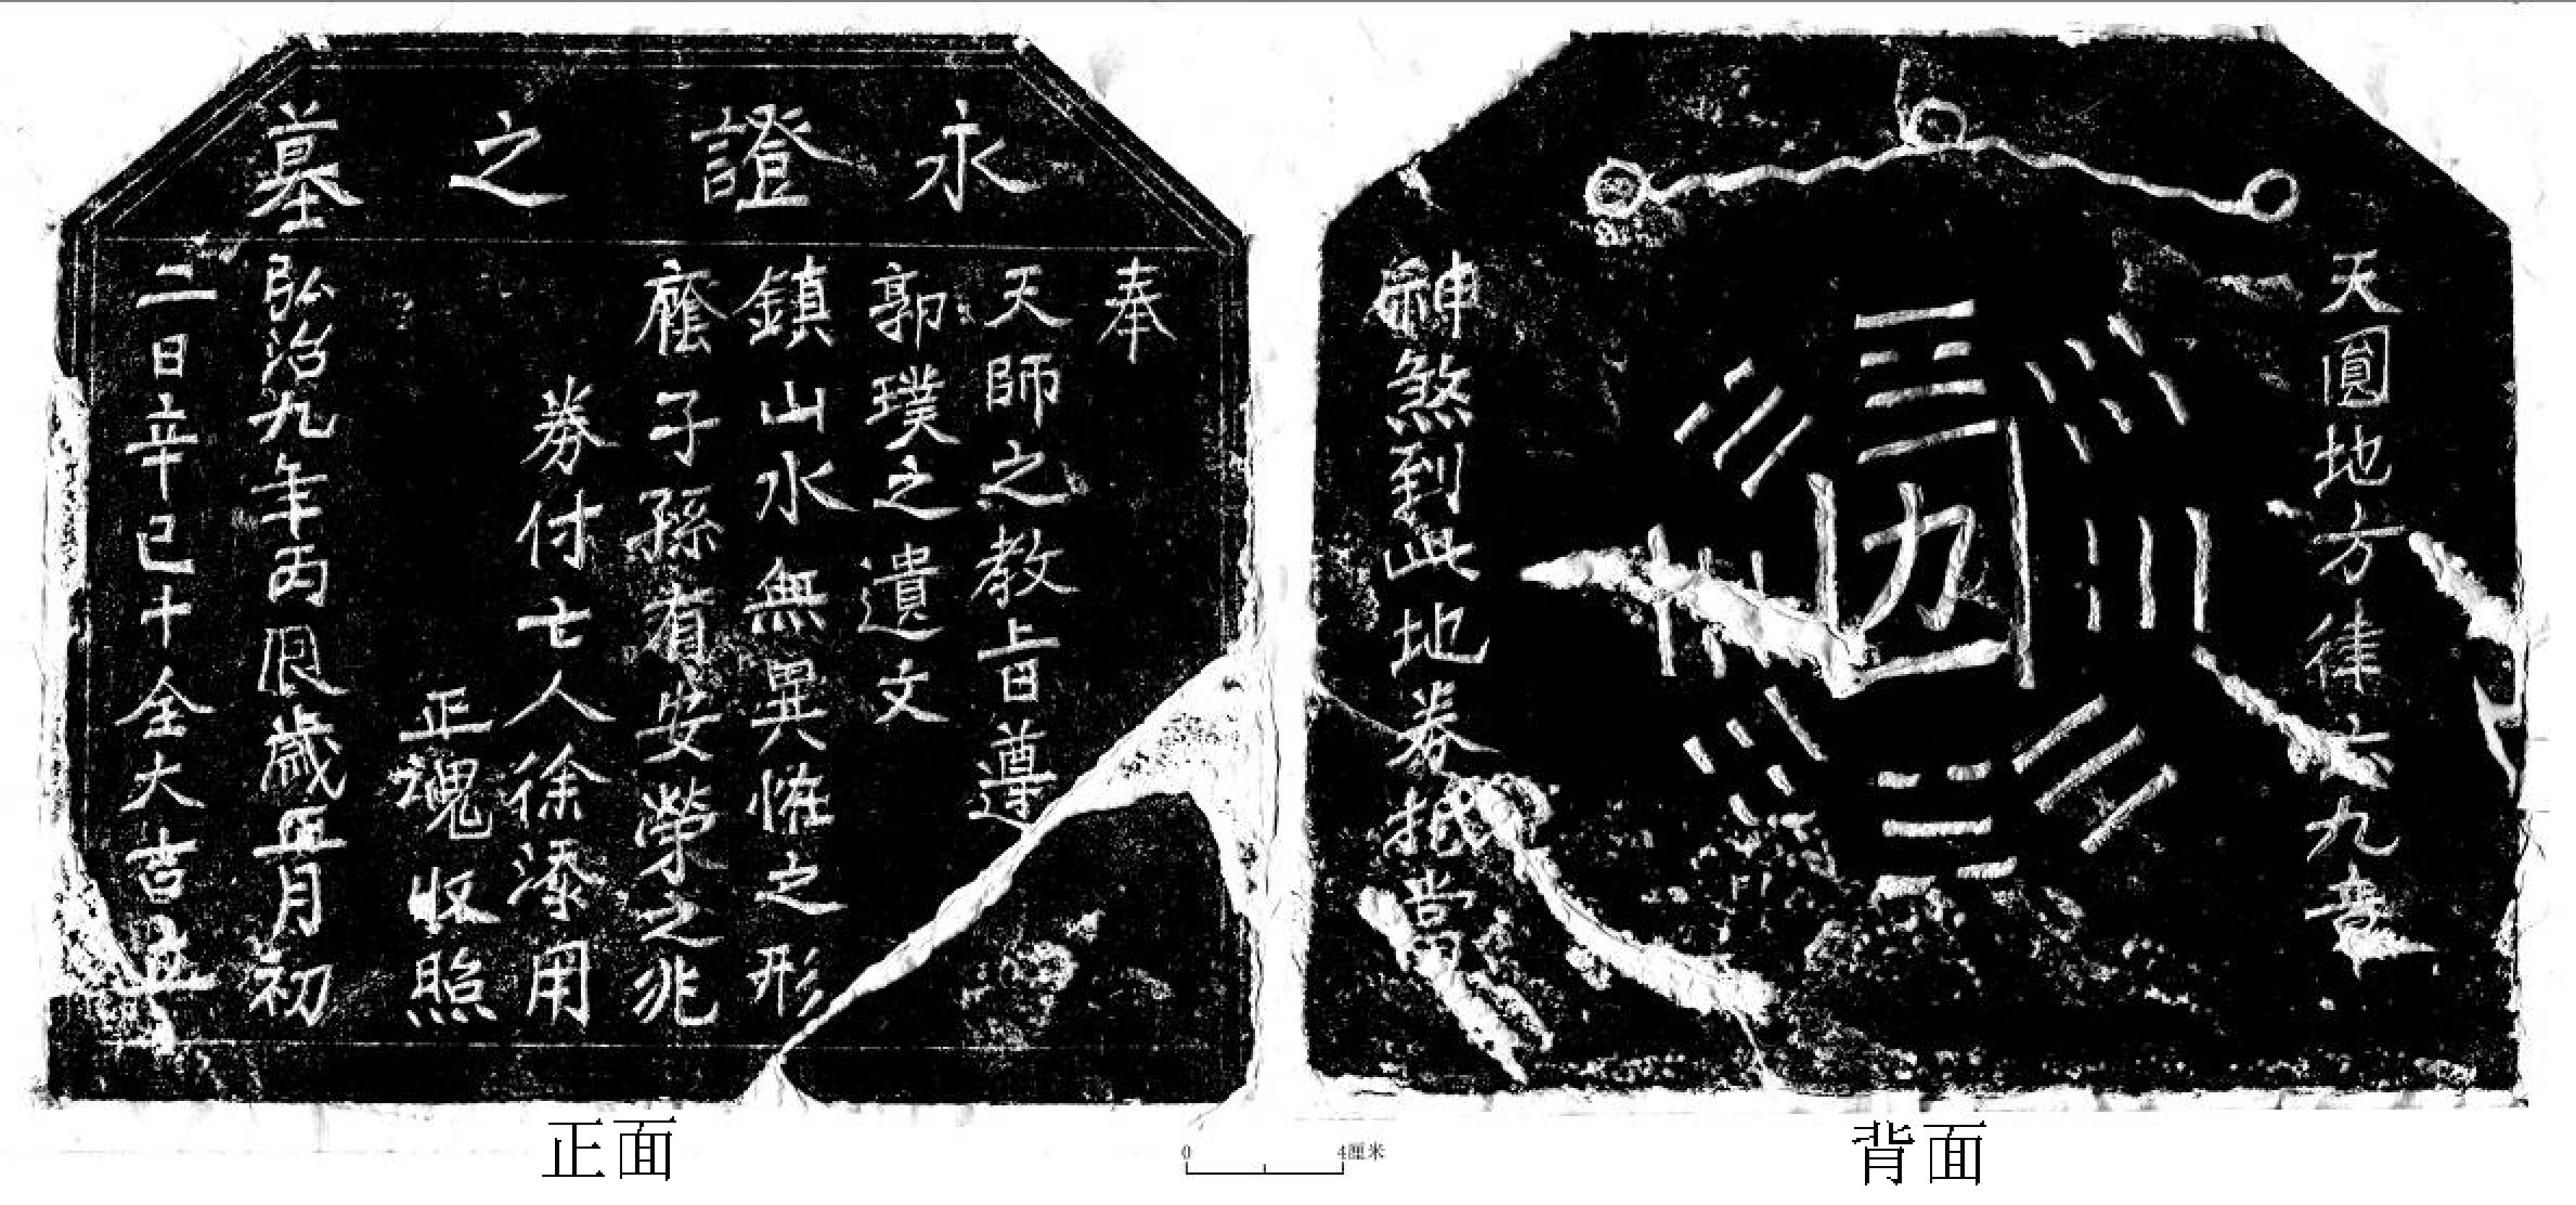 永證之墓
奉
天師之教旨遵
郭璞之遺文
鎮山水無異惟之形
廕子孫有安榮之兆
劵付亡人徐漆用
正魂收照
弘治九年丙辰歲正月初
二日辛已十全大吉
天圓地方律六九章
神煞到此地券抵當
正面
0 4厘米
背面